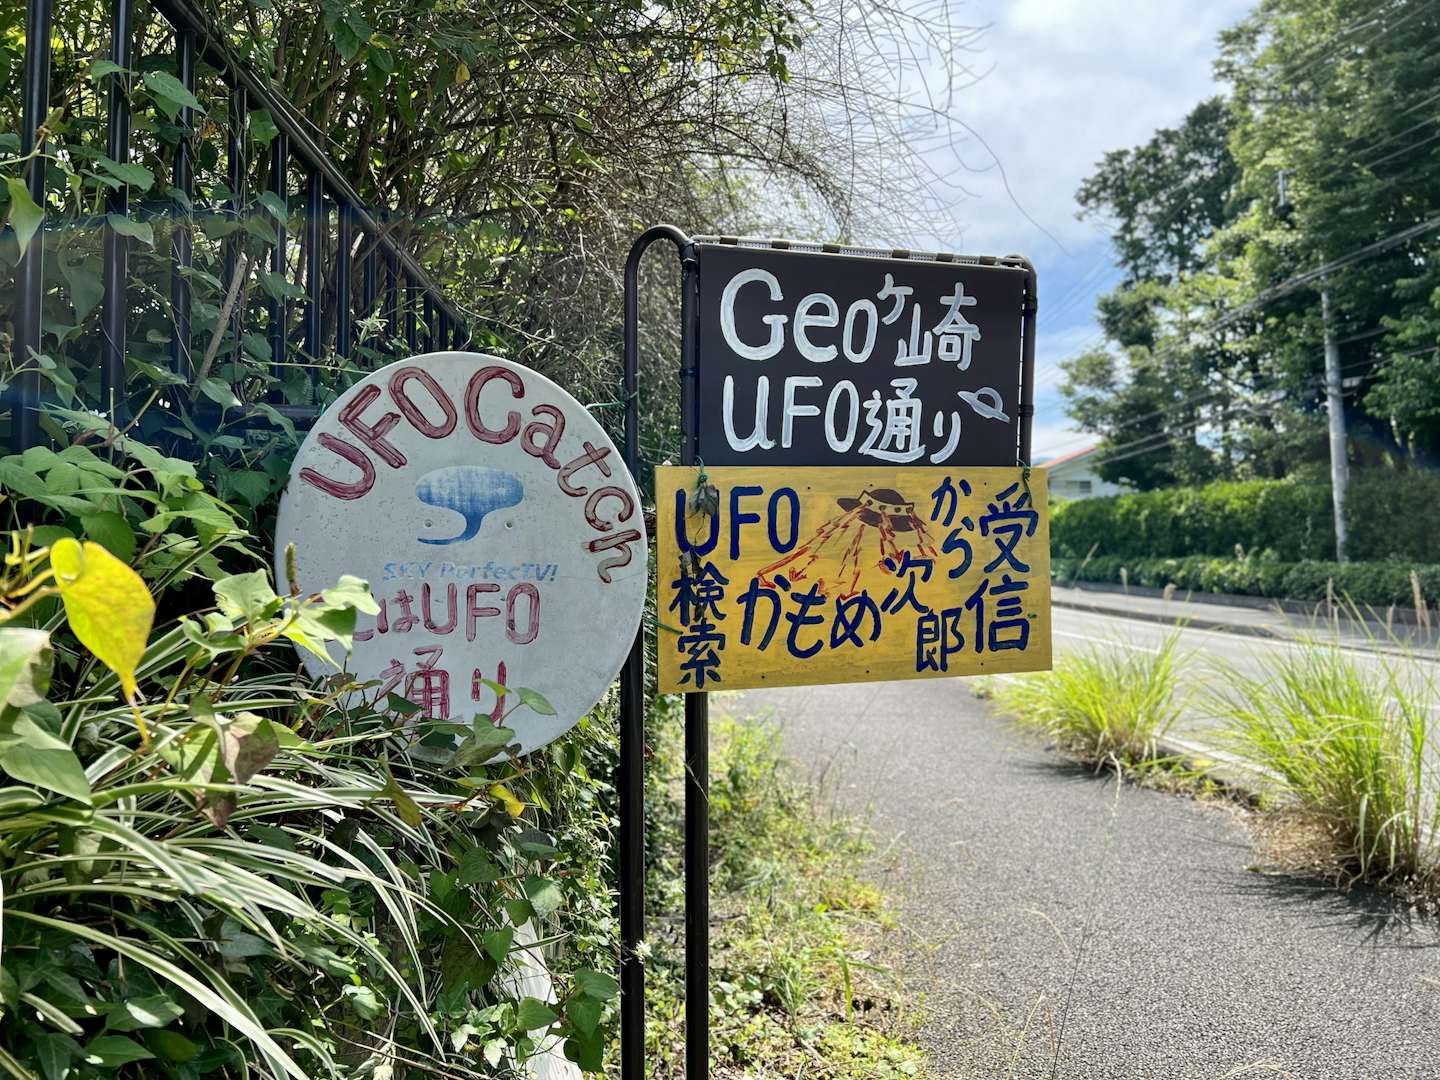 UFO Catch
SKY PerfecTV!
はUFO
通り
Geoヶ崎
UFO通り
UFO
検索
かもめ次郎
から
受信